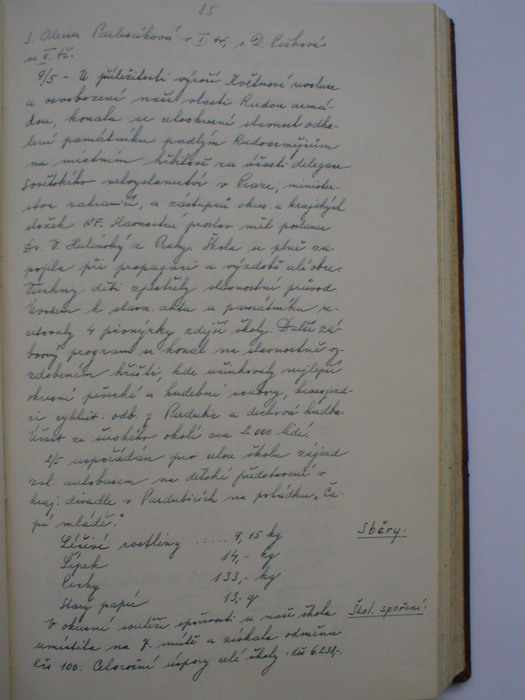 85
s. Alena Parlesáková v I. tř., s. D. Císková
ve II. tř.
9/5 - U příležitosti výročí Květnové revoluce
a osvobození naší vlasti Rudou armá-
dou, konala se celookresní slavnost odha-
lení památníku padlým Rudoarmějcům
na místním hřbitově za účasti delegace
Sovětského velvyslanectví v Praze, minister-
stva zahraničí, a zástupců okres. a krajských
složek NF. Slavnostní proslov měl poslanec
Dr. V. z Škola se plně za-
pojila při propagaci a výzdobě celé obce.
Všechny děti zpestřily slavnostní průvod.
Úvodem k slavn. aktu u památníku re-
citovaly 4 pionýrky zdejší školy. Další zá-
bavný program se konal na slavnostně vy-
zdobeném hřišti, kde účinkovaly nejlepší
okresní pěvecké a hudební soubory,
odb. z Pardubic a dechová hudba.
Účast ze širokého okolí cca 2.000 lidí.
2/5 uspořádán pro celou školu zájezd
zvl. autobusem na dětské představení v
kraj. divadle v Pardubicích na pohádku „Ča-
pí mládě."
Sběry.
Léčivé rostliny ..... 9,15 kg
Šípek 14,- kg
Pecky 133,- kg
Starý papír 13,- q
Škol. spoření.
V okresní soutěži spořivosti se naše škola
umístila na 7. místě a získala odměnu
Kčs 100. Celoroční úspory celé školy: Kčs 6.231,-.